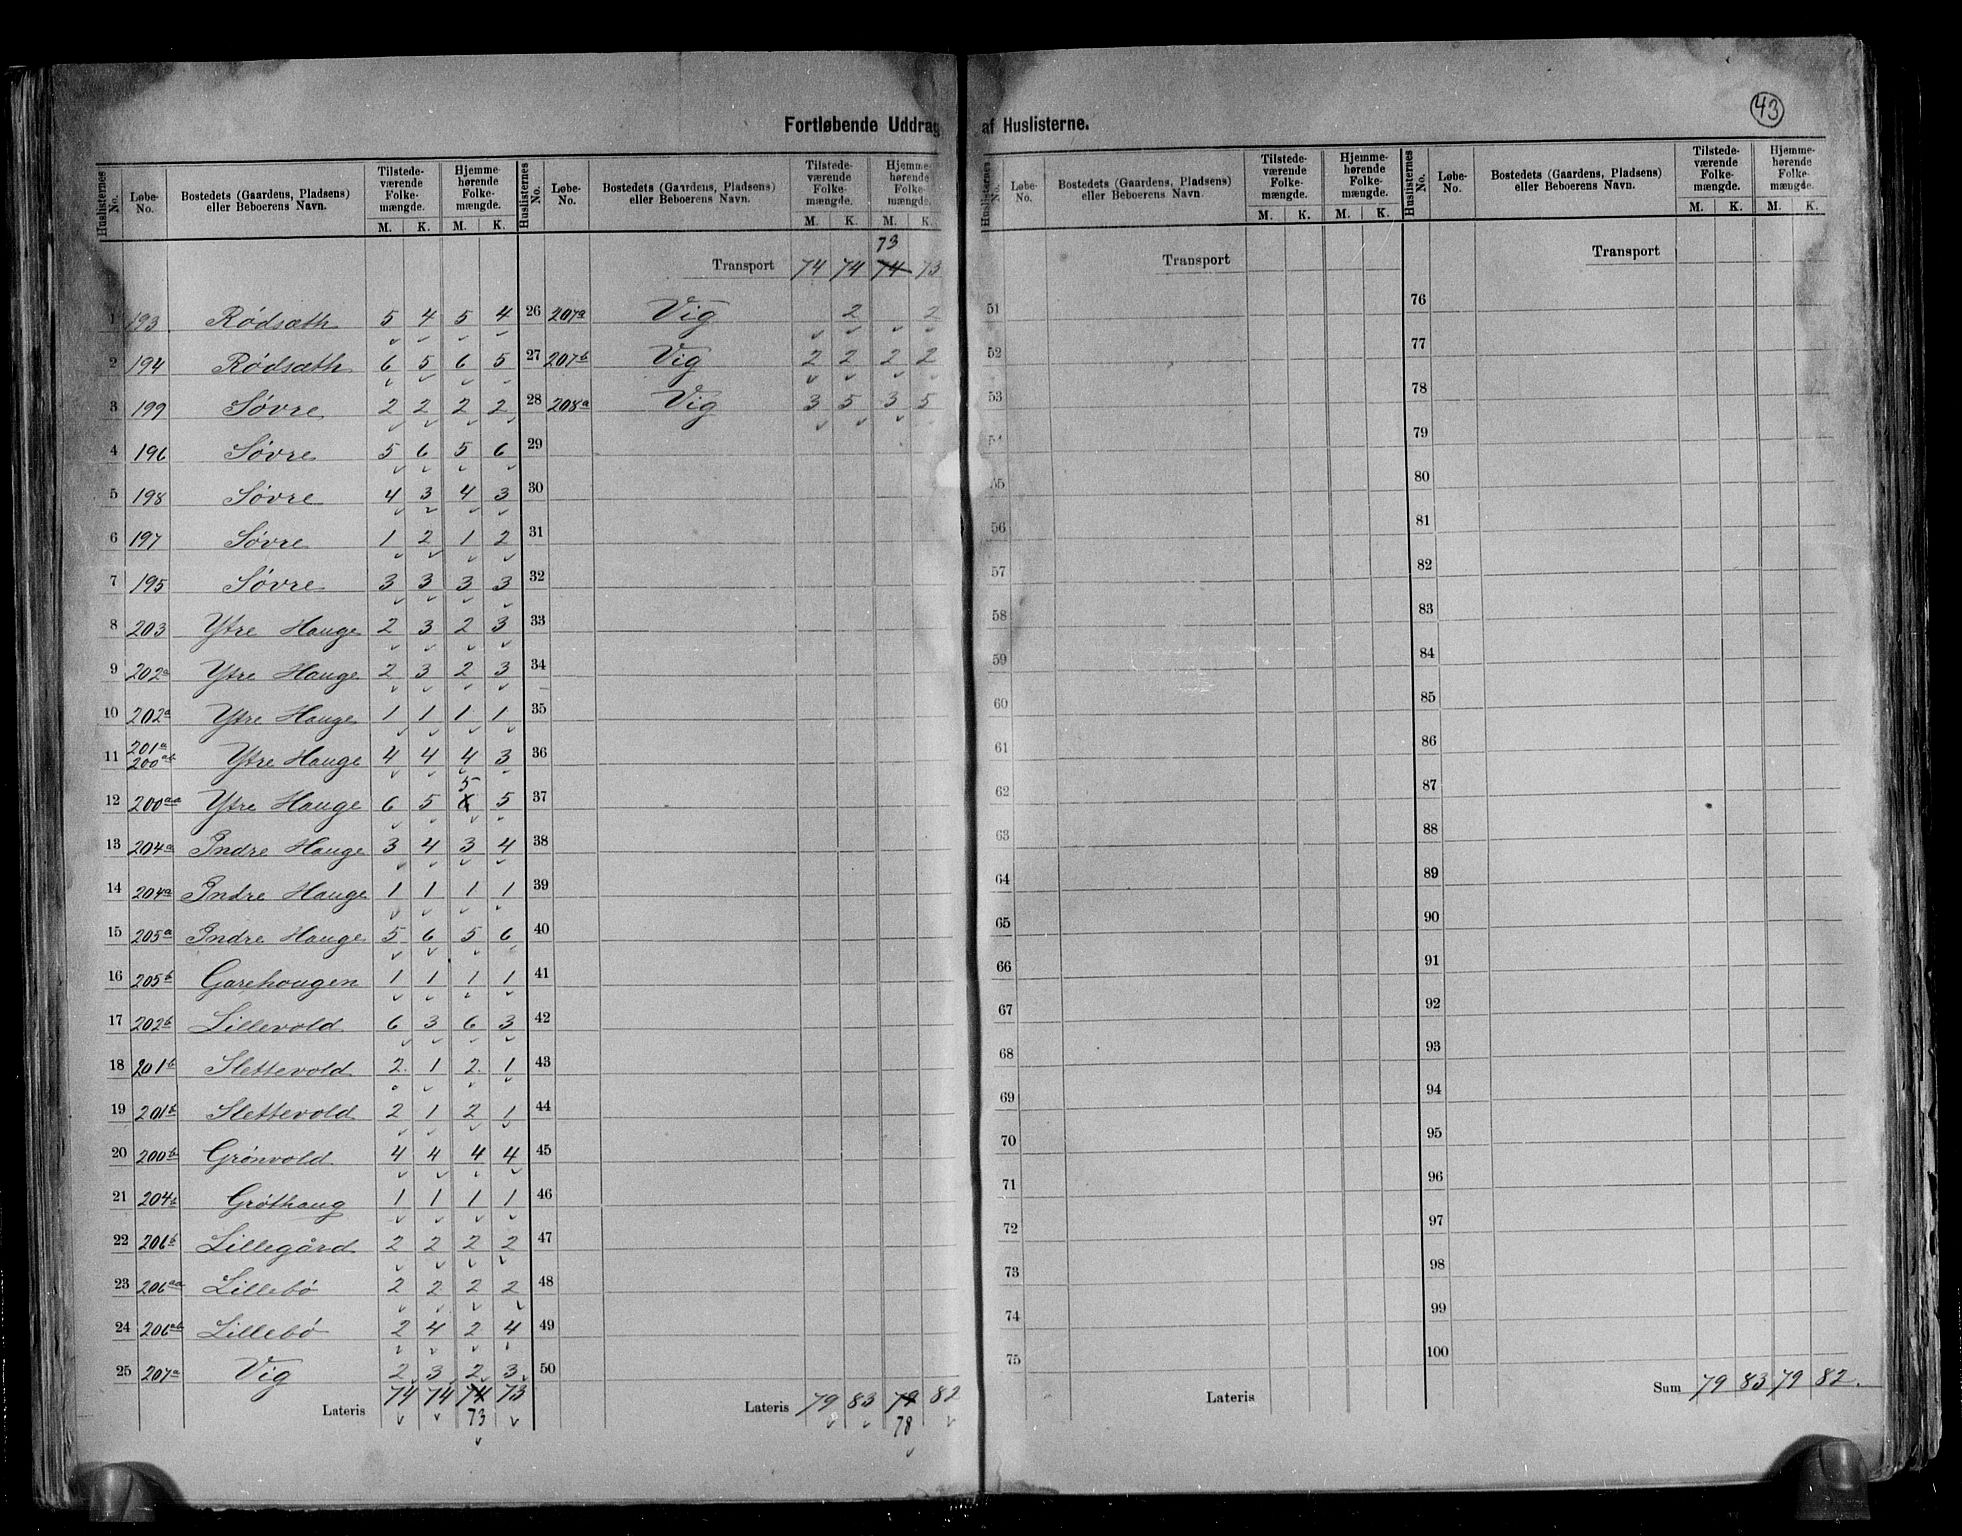 43
Fortløbende Uddrag af Huslisterne.
Huslisternes No. | Løbe-No. | Bostedets (Gaardens, Pladsens) eller Beboerens Navn. | Tilstedeværende Folkemængde. M. K. | Hjemmehørende Folkemængde. M. K.
1 193 Rødsæth 5 4 5 4
2 194 Rødsæth 6 5 6 5
3 199 Søvre 2 2 2 2
4 196 Søvre 5 6 5 6
5 198 Søvre 4 3 4 3
6 197 Søvre 1 2 1 2
7 195 Søvre 3 3 3 3
8 203 Ytre Hauge 2 3 2 3
9 202a Ytre Hauge 2 3 2 3
10 202a Ytre Hauge 1 1 1 1
11 201a 200ab Ytre Hauge 4 4 4 3
12 200aa Ytre Hauge 6 5 5 5
13 204a Indre Hauge 3 4 3 4
14 204a Indre Hauge 1 1 1 1
15 205a Indre Hauge 5 6 5 6
16 205b Garehougen 1 1 1 1
17 202b Lillevold 6 3 6 3
18 201b Slettevold 2 1 2 1
19 201b Slettevold 2 1 2 1
20 200b Grønvold 4 4 4 4
21 204b Grøthaug 1 1 1 1
22 206b Lillegård 2 2 2 2
23 206aa Lillebø 2 2 2 2
24 206ab Lillebø 2 4 2 4
25 207a Vig 2 3 2 3
Lateris 74 74 74 73
73
Huslisternes No. | Løbe-No. | Bostedets (Gaardens, Pladsens) eller Beboerens Navn. | Tilstedeværende Folkemængde. M. K. | Hjemmehørende Folkemængde. M. K.
73
Transport 74 74 74 73
26 207a Vig 2 2
27 207b Vig 2 2 2 2
28 208a Vig 3 5 3 5
29
30
31
32
33
34
35
36
37
38
39
40
41
42
43
44
45
46
47
48
49
50
Lateris 79 83 79 82
78
Huslisternes No. | Løbe-No. | Bostedets (Gaardens, Pladsens) eller Beboerens Navn. | Tilstedeværende Folkemængde. M. K. | Hjemmehørende Folkemængde. M. K.
Transport
51
52
53
54
55
56
57
58
59
60
61
62
63
64
65
66
67
68
69
70
71
72
73
74
75
Lateris
Huslisternes No. | Løbe-No. | Bostedets (Gaardens, Pladsens) eller Beboerens Navn. | Tilstedeværende Folkemængde. M. K. | Hjemmehørende Folkemængde. M. K.
Transport
76
77
78
79
80
81
82
83
84
85
86
87
88
89
90
91
92
93
94
95
96
97
98
99
100
Sum 79 83 79 82.